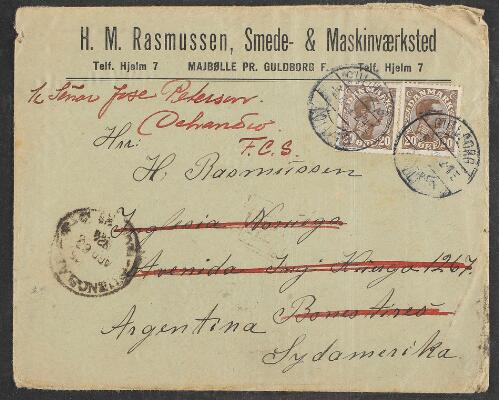 H. M. Rasmussen, Smede- & Maskinværksted
Telf. Hjelm 7 MAJBØLLE PR. GULDBORG F. Telf. Hjelm 7
Señor Jose Petersen
Ochandio
F.C.S.
Hrr.
H. Rasmussen
Iglesia Noruega
Avenida Ing Huergo 1267
Buenos Aires
Argentina
Sydamerika
DANMARK
20 ØRE 20
DANMARK
20 ØRE 20
GULDBORG